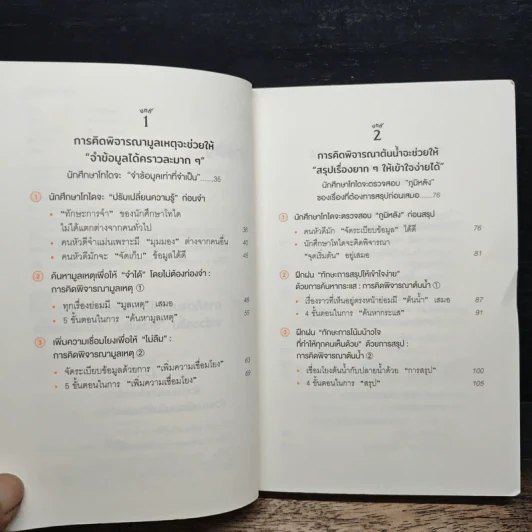 บทที่
1
การคิดพิจารณามูลเหตุจะช่วยให้
“จำข้อมูลได้คราวละมาก ๆ”
นักศึกษาโทไดจะ “จำข้อมูลเท่าที่จำเป็น”......35
① นักศึกษาโทไดจะ “ปรับเปลี่ยนความรู้” ก่อนจำ
• “ทักษะการจำ” ของนักศึกษาโทได
ไม่ได้แตกต่างจากคนทั่วไป 36
• คนหัวดีจำแม่นเพราะมี “มุมมอง” ต่างจากคนอื่น 40
• คนหัวดีมักจะ “จัดเก็บ” ข้อมูลได้ดี 45
② ค้นหามูลเหตุเพื่อให้ “จำได้” โดยไม่ต้องท่องจำ :
การคิดพิจารณามูลเหตุ ①
• ทุกเรื่องย่อมมี “มูลเหตุ” เสมอ 50
• 5 ขั้นตอนในการ “ค้นหามูลเหตุ” 55
③ เพิ่มความเชื่อมโยงเพื่อให้ “ไม่ลืม” :
การคิดพิจารณามูลเหตุ ②
• จัดระเบียบข้อมูลด้วยการ “เพิ่มความเชื่อมโยง” 63
• 5 ขั้นตอนในการ “เพิ่มความเชื่อมโยง” 67
บทที่
2
การคิดพิจารณาต้นน้ำจะช่วยให้
“สรุปเรื่องยาก ๆ ให้เข้าใจง่ายได้”
นักศึกษาโทไดจะตรวจสอบ “ภูมิหลัง”
ของเรื่องที่ต้องการสรุปก่อนเสมอ......75
① นักศึกษาโทไดจะตรวจสอบ “ภูมิหลัง” ก่อนสรุป
• คนหัวดีมัก “จัดระเบียบข้อมูล” ได้ดี 76
• นักศึกษาโทไดจะคิดพิจารณา
“จุดเริ่มต้น” อยู่เสมอ 81
② ฝึกฝน “ทักษะการสรุปให้เข้าใจง่าย”
ด้วยการค้นหากระแส : การคิดพิจารณาต้นน้ำ ①
• เรื่องราวที่เห็นอยู่ตรงหน้าย่อมมี “ต้นน้ำ” เสมอ 87
• 4 ขั้นตอนในการ “ค้นหากระแส” 91
③ ฝึกฝน “ทักษะการโน้มน้าวใจ
ที่ทำให้ทุกคนเห็นด้วย” ด้วยการสรุป :
การคิดพิจารณาต้นน้ำ ②
• เชื่อมโยงต้นน้ำกับปลายน้ำด้วย “การสรุป” 100
• 4 ขั้นตอนในการ “สรุป” 105